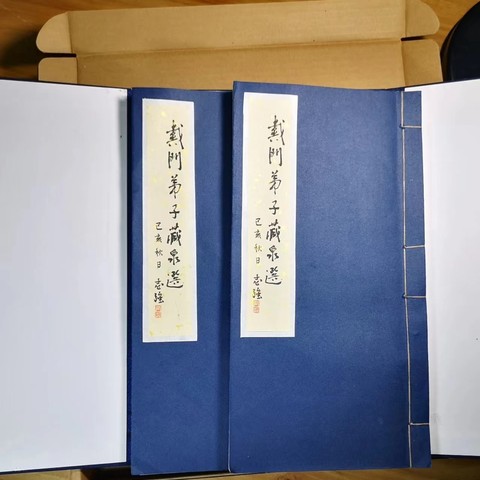 戴門弟子藏泉選
己亥秋日
志強
戴門弟子藏泉選
己亥秋日
志強